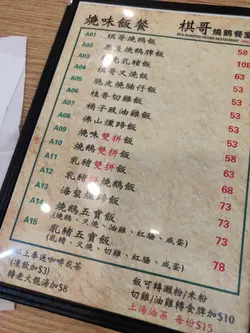 燒味飯餐
棋哥 燒鵝餐室
A01 棋哥燒鵝飯 58
燒鵝髀飯 108
乳豬飯 63
A04 棋哥叉燒飯
A05 脆皮燒腩仔飯 53
A06 桂香切雞飯 53
A07 桶子豉油雞飯 53
A08 佛山燻蹄飯 53
A09 燒味雙拼飯
A10 燒鵝雙拼飯 58
A11 乳豬雙拼飯 63
A12 乳豬拼燒鵝飯 68
A13 海蜇燻蹄飯 53
A14 燒鵝五寶飯 73
(燒鵝、叉燒、油雞、紅腸、咸蛋)
A15 乳豬五寶飯 78
(乳豬、叉燒、油雞、紅腸、咸蛋)
以上奉送咖啡或茶
(凍飲加$3)
轉老火龍湯加$8
飯可轉瀨粉/米粉
切雞/油雞轉食髀加$10
上湯油菜 每份$15